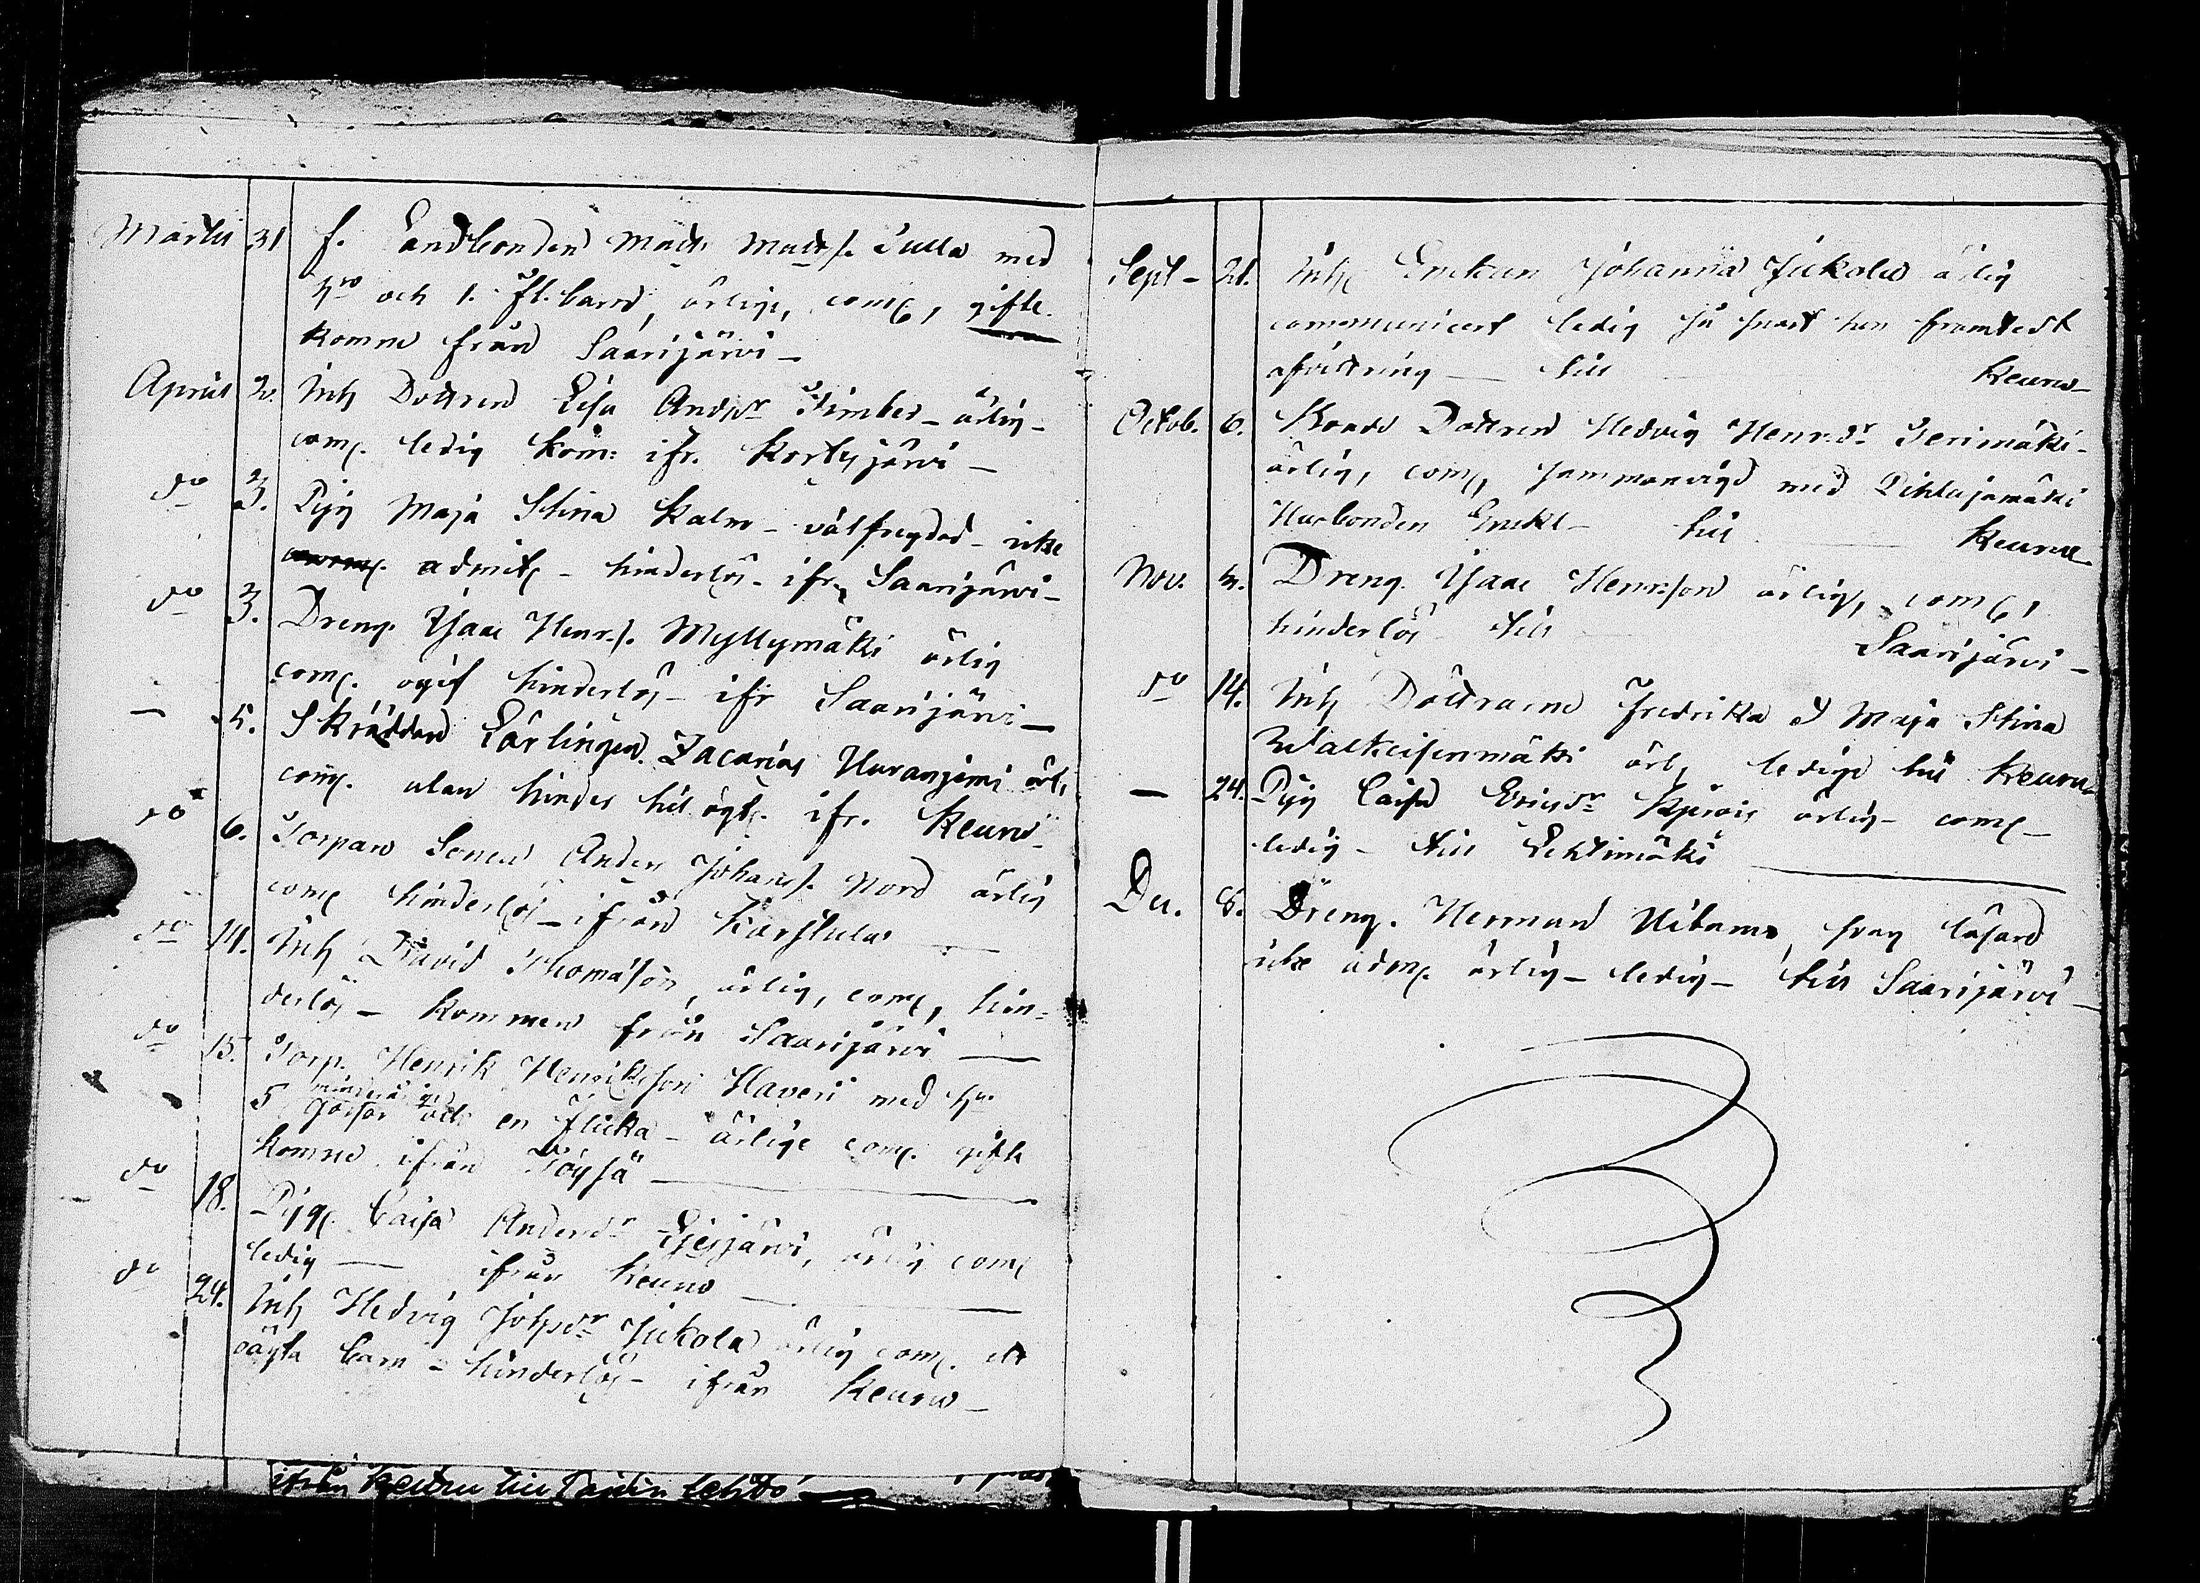 Martii 31 f. Landbonden Matts Matts. Tulla med
hu och 1. fl. barn, ärlige, comc, gifte.
komne från Saarijärvi –
April 2. Inh Dottren Lisa Andsdr Timber – ärlig –
comc. ledig kom: ifr. Kortesjärvi –
do 3. Pig Maja Stina Kalm – välfregdad – icke
admitt – hinderlös – ifr. Saarijärvi –
do 3. Dreng. Isaac Henr.s. Myllymäki ärlig
comc. ogif hinderlös – ifr Saarijärvi –
– 5. Skräddare Lärlingen Zacarias Huranjemi ärl,
comc. utan hinder till ägt. ifr. Keuru –
do 6. Torpare Sonen Anders Johans. Nord ärlig
comc hinderlös – ifrån Karstula –
do 14. Inh David Thomasson, ärlig, comc, hin-
derlös – kommen från Saarijärvi –
do 15. Torp. Henrik Henriksson Haveri med hu
minderårige
5 gossar och en flicka – ärlige comc. gifte
komne ifrån Töysä –
do 18. Pig Caisa Andersdr ärlig comc
ledig – ifrån Keuru –
do 24. Inh Hedvig Johsdr Jukola ärlig comc. ett
oägta barn – hinderlös – ifrån Keuru –
ifrån Keuru till
Sept – 21. Inh Enkan Johanna Jukola ärlig
communicert ledig så snart hon framtedt
afvittring – till Keuru –
Octob. 6. Bonde Dottren Hedvig Henr.dr Terimäki –
ärlig, comc, sammanvigd med Pihlajamäki
Husbonden Enkl – till – Keuru
Nov. 4. Dreng. Isaac Henrsson ärlig, comc,
hinderlös till Saarijärvi –
do 14. Inh Döttrarne Fredrika & Maja Stina
Walkeisenmäki ärl, ledige till Keuru –
– 24. Pig Caisa Ericsdr ärlig – comc –
ledig – till Lehtimäki –
Dec. 8. Dreng. Herman svag läsare
icke adm. ärlig – ledig – till Saarijärvi –